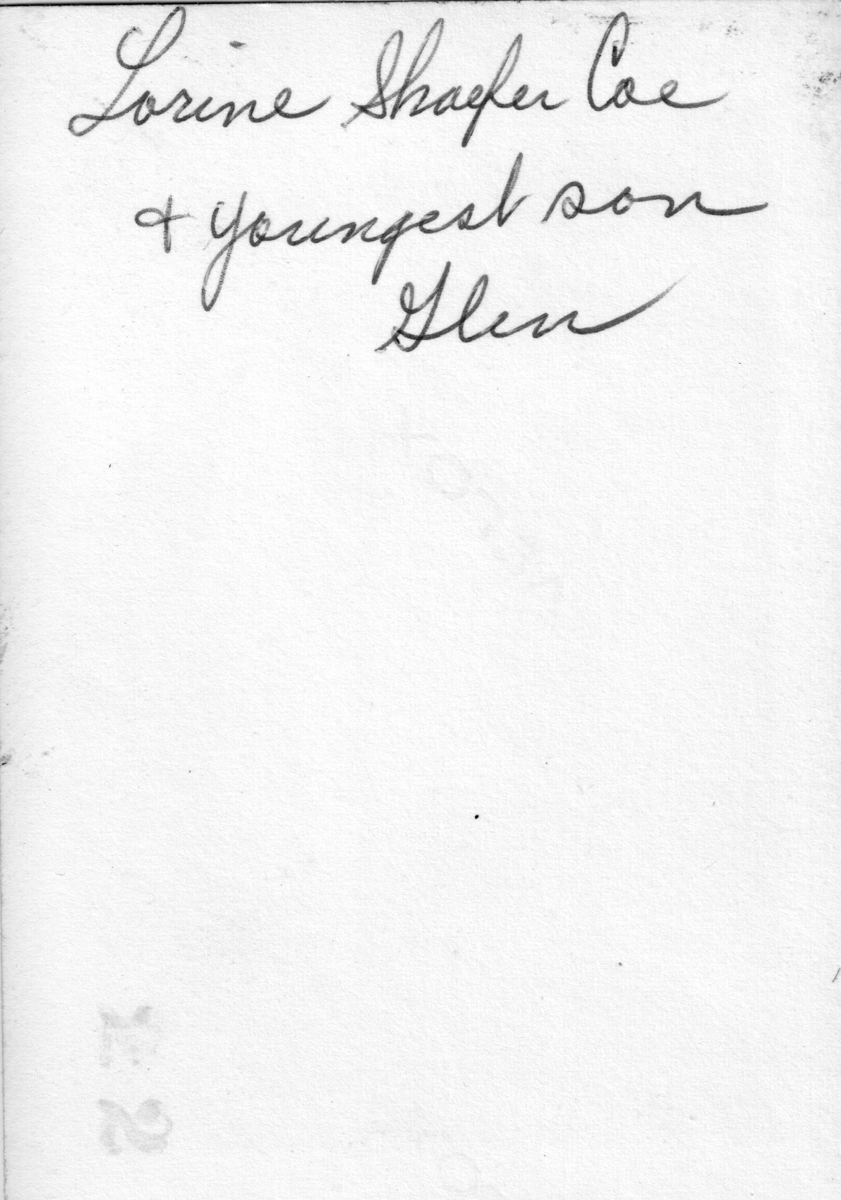 Lorine Shaefer Coe
+ youngest son
Glen